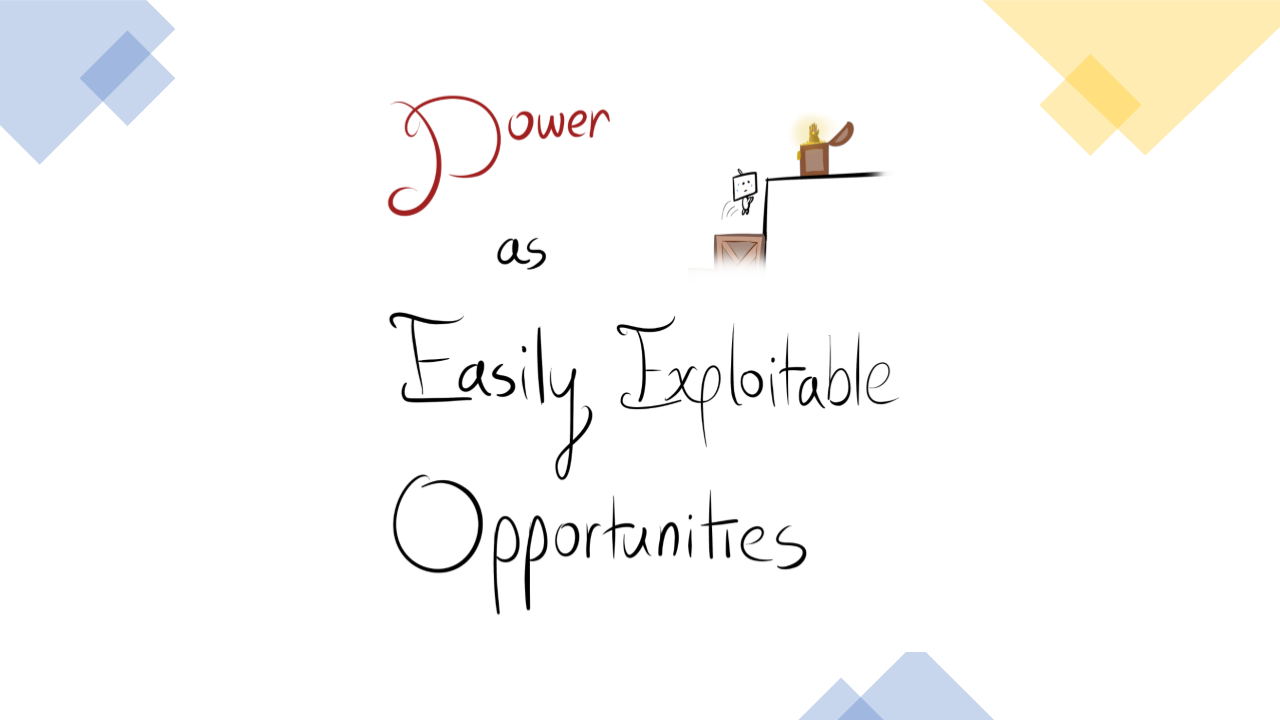 Power
as
Easily Exploitable
Opportunities